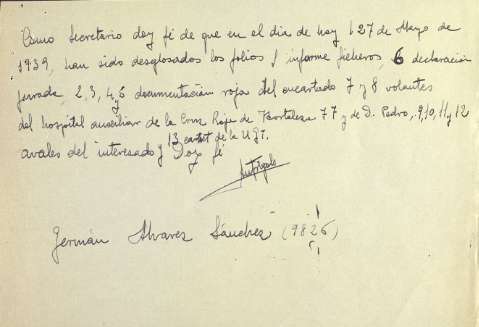 Como Secretario doy fé de que en el dia de hoy 27 de Mayo de
1939, han sido desglosados los folios 1 informe ficheros, 6 declaración
jurada 2, 3, 4 y 5 documentación roja del encartado 7 y 8 volantes
del hospital auxiliar de la Cruz Roja de Hortaleza 77 y de D. Pedro, 9, 10, 11 y 12
avales del interesado y 13 carnet de la UGT. Doy fé
Germán Alvarez Sánchez (9826)